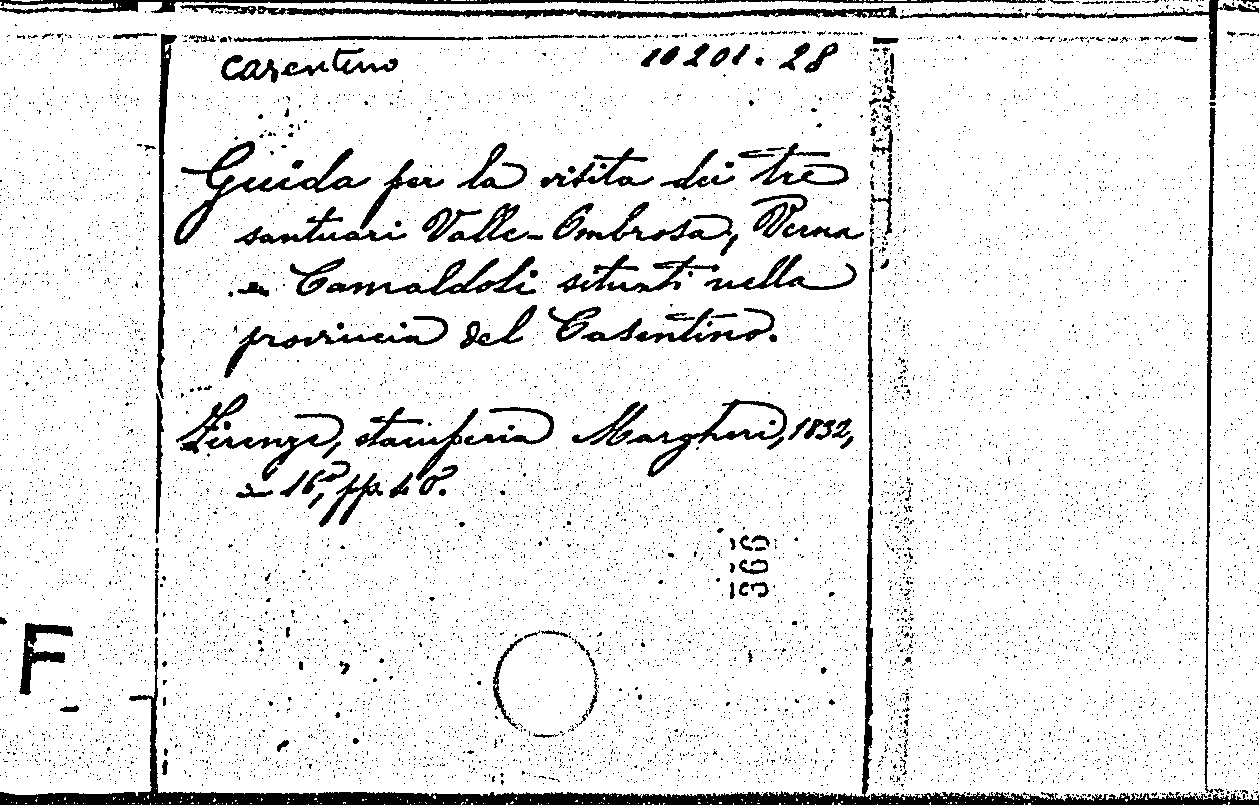 Casentino 10201.28
Guida per la visita dei tre
santuari Valle-Ombrosa, Verna
e Camaldoli situati nella
provincia del Casentino.
Firenze, stamperia Margheri, 1832,
in 16°, pp. 40.
366
F